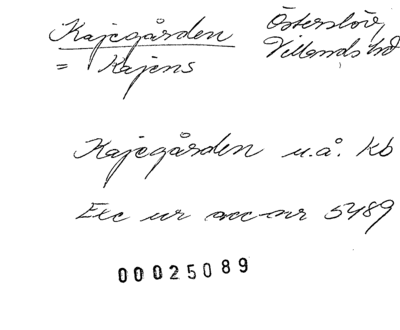 Kajegården Österslöv
= Kajens Villands hd
Kajegården u.å. Kb
Exc ur acc-nr 5489
00025089